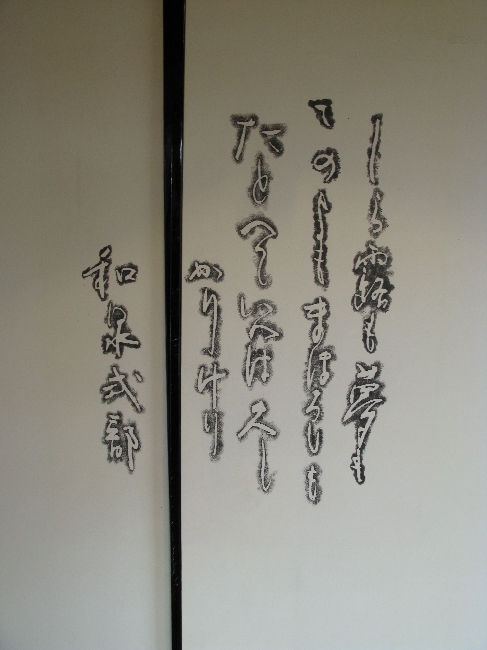 しら露も夢も
このよもまほろしも
たとへていへは久し
かりけり
和泉式部